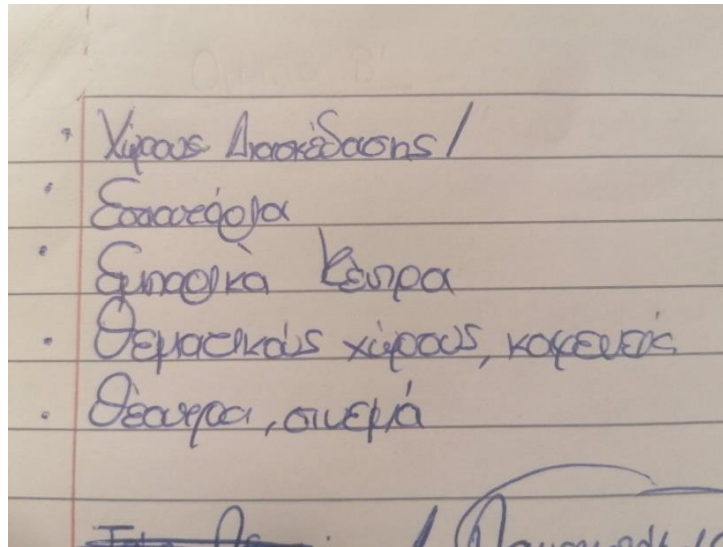 • Χώρους Διασκέδασης/
• Εστιατόρια
• Εμπορικά Κέντρα
• Θεματικούς χώρους, καφενεές
• Θέατρα, σινεμά